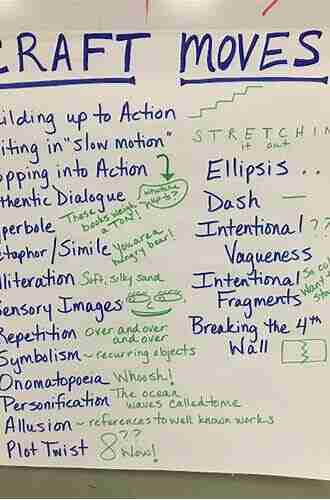 CRAFT MOVES
uilding up to Action
iting in "slow motion"
pping into Action
thentic Dialogue
perbole Those books weigh a ton!
etaphor/Simile You are a angry bear!
lliteration Soft, silky sand
ensory Images
Repetition over and over and over
Symbolism ~ recurring objects
Onomatopoeia Whoosh!
Personification The ocean waves called to me
Allusion ~ references to well known works
Plot Twist ?? Wow!
STRETCHIN
it out
Ellipsis ..
Dash —
Intentional ??
Vagueness
Intentional
Fragments
Breaking the 4th
Wall